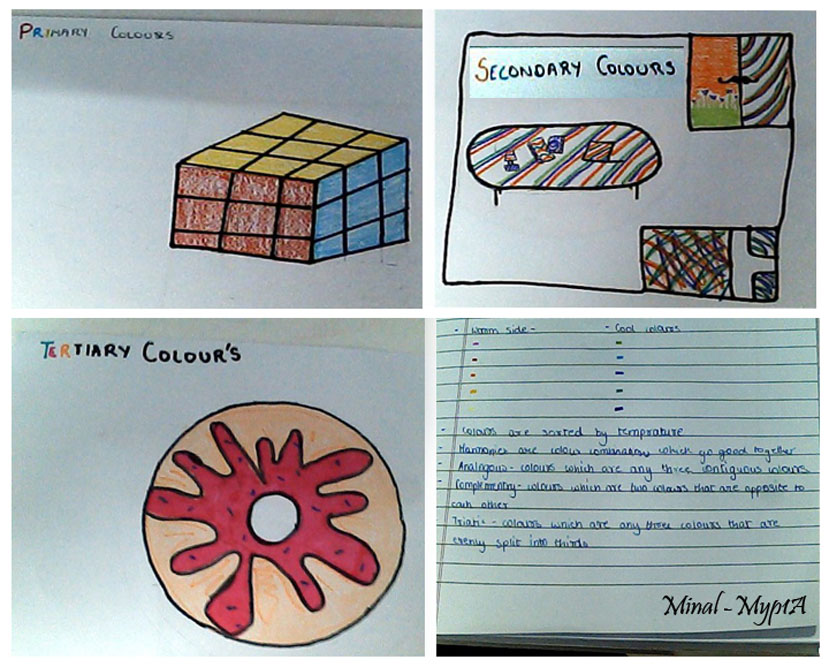 PRIMARY COLOURS
SECONDARY COLOURS
TERTIARY COLOUR'S
- Warm side - - Cool colours
- colours are sorted by temprature
- Harmonies are colour which go good together
- Analogous - colours which are any three contiguous colours
- Complementry - colours which are two colours that are opposite to
each other
Triatic - colours which are any three colours that are
evenly split into thirds
Minal - Myp1A